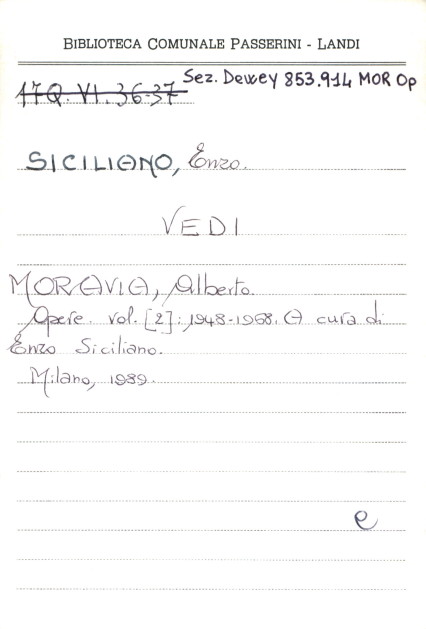 BIBLIOTECA COMUNALE PASSERINI - LANDI
Sez. Dewey 853.914 MOR Op
17Q. VI. 36-37
SICILIANO, Enzo.
VEDI
MORAVIA, Alberto.
Opere. vol. [2]: 1948-1968. A cura di
Enzo Siciliano.
Milano, 1989.
e